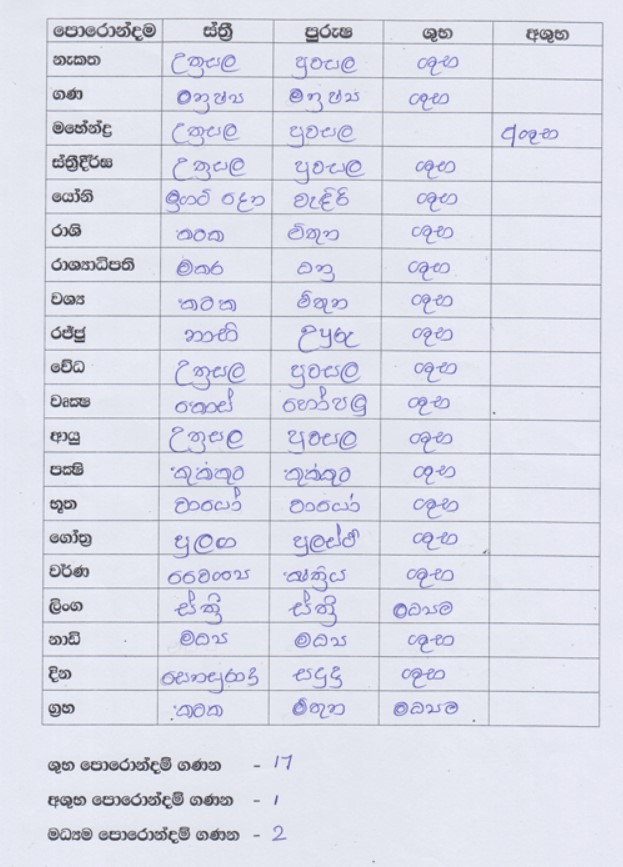 පොරොන්දම ස්ත්‍රී පුරුෂ ශුභ අශුභ
නැකත උත්‍රසල පුවසල ශුභ
ගණ මනුෂ්‍ය මනුෂ්‍ය ශුභ
මහේන්ද්‍ර උත්‍රසල පුවසල අශුභ
ස්ත්‍රීදීර්ඝ උත්‍රසල පුවසල ශුභ
යෝනි මුගටි දෙන වැඳිරි ශුභ
රාශි කටක මිතුන ශුභ
රාශ්‍යාධිපති මකර ධනු ශුභ
වශ්‍ය කටක මිතුන ශුභ
රජ්ජු නාභි උපුරු ශුභ
වේධ උත්‍රසල පුවසල ශුභ
වෘක්‍ෂ කොස් හෝපලු ශුභ
ආයු උත්‍රසල පුවසල ශුභ
පක්‍ෂි කුක්කුට කුක්කුට ශුභ
භූත වායෝ වායෝ ශුභ
ගෝත්‍ර පුලග පුලස්ථි ශුභ
වර්ණ වෛශ්‍ය ක්‍ෂත්‍රිය ශුභ
ලිංග ස්ත්‍රි ස්ත්‍රි මධ්‍යම
නාඩි මධ්‍ය මධ්‍ය ශුභ
දින සෙනසුරාදි සඳුදු ශුභ
ග්‍රහ කටක මිතුන මධ්‍යම
ශුභ පොරොන්දම් ගණන - 17
අශුභ පොරොන්දම් ගණන - 1
මධ්‍යම පොරොන්දම් ගණන - 2